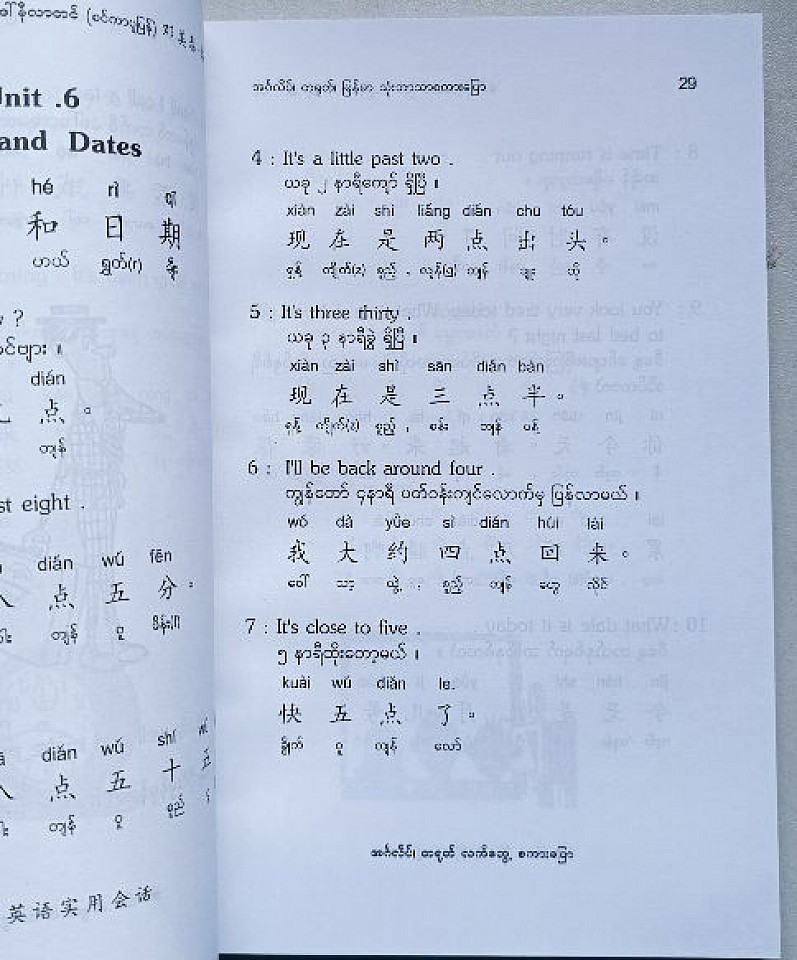 Unit .6
and Dates
hé rì qī
和 日 期
ဟယ် ရွှတ်(r)
?
dián
点 。
ကျန်
st eight .
dián wǔ fēn
八 点 五 分 。
ကျန် ဝူ
dián wǔ shí
八 点 五 十 五
ကျန် ဝူ စူည်
英语实用会话
အင်္ဂလိပ်၊ တရုတ်၊ မြန်မာ သုံးဘာသာစကားပြော 29
4 : It's a little past two .
ယခု ၂ နာရီကျော် ရှိပြီ ။
xiàn zài shì liǎng diǎn chū tóu
现 在 是 两 点 出 头 。
ရှန့် ကျိုက်(z) စူည့် , လျန်(g) ကျန် ချူး ထို့
5 : It's three thirty .
ယခု ၃ နာရီခွဲ ရှိပြီ ။
xiàn zài shì sān diǎn bàn
现 在 是 三 点 半 。
ရှန့် ကျိုက်(z) စူည့် , စန်း ကျန် ပန့်
6 : I'll be back around four .
ကျွန်တော် ၄နာရီ ပတ်ဝန်းကျင်လောက်မှ ပြန်လာမယ် ။
wǒ dà yūe sì diǎn húi lái
我 大 约 四 点 回 来 。
ဝေါ် သာ့ ယွဲ့ , စူည့် ကျန် ဟွေ လိုင်
7 : It's close to five .
၅ နာရီထိုးတော့မယ် ။
kuài wǔ diǎn le.
快 五 点 了 。
ခွိုက် ဝူ ကျန် လော်
အင်္ဂလိပ်၊ တရုတ် လက်တွေ့ စကားပြော